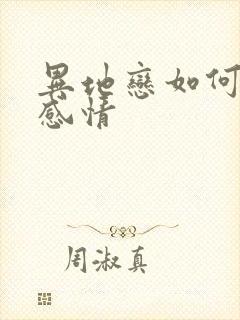 異地戀如何
感情
周淑真